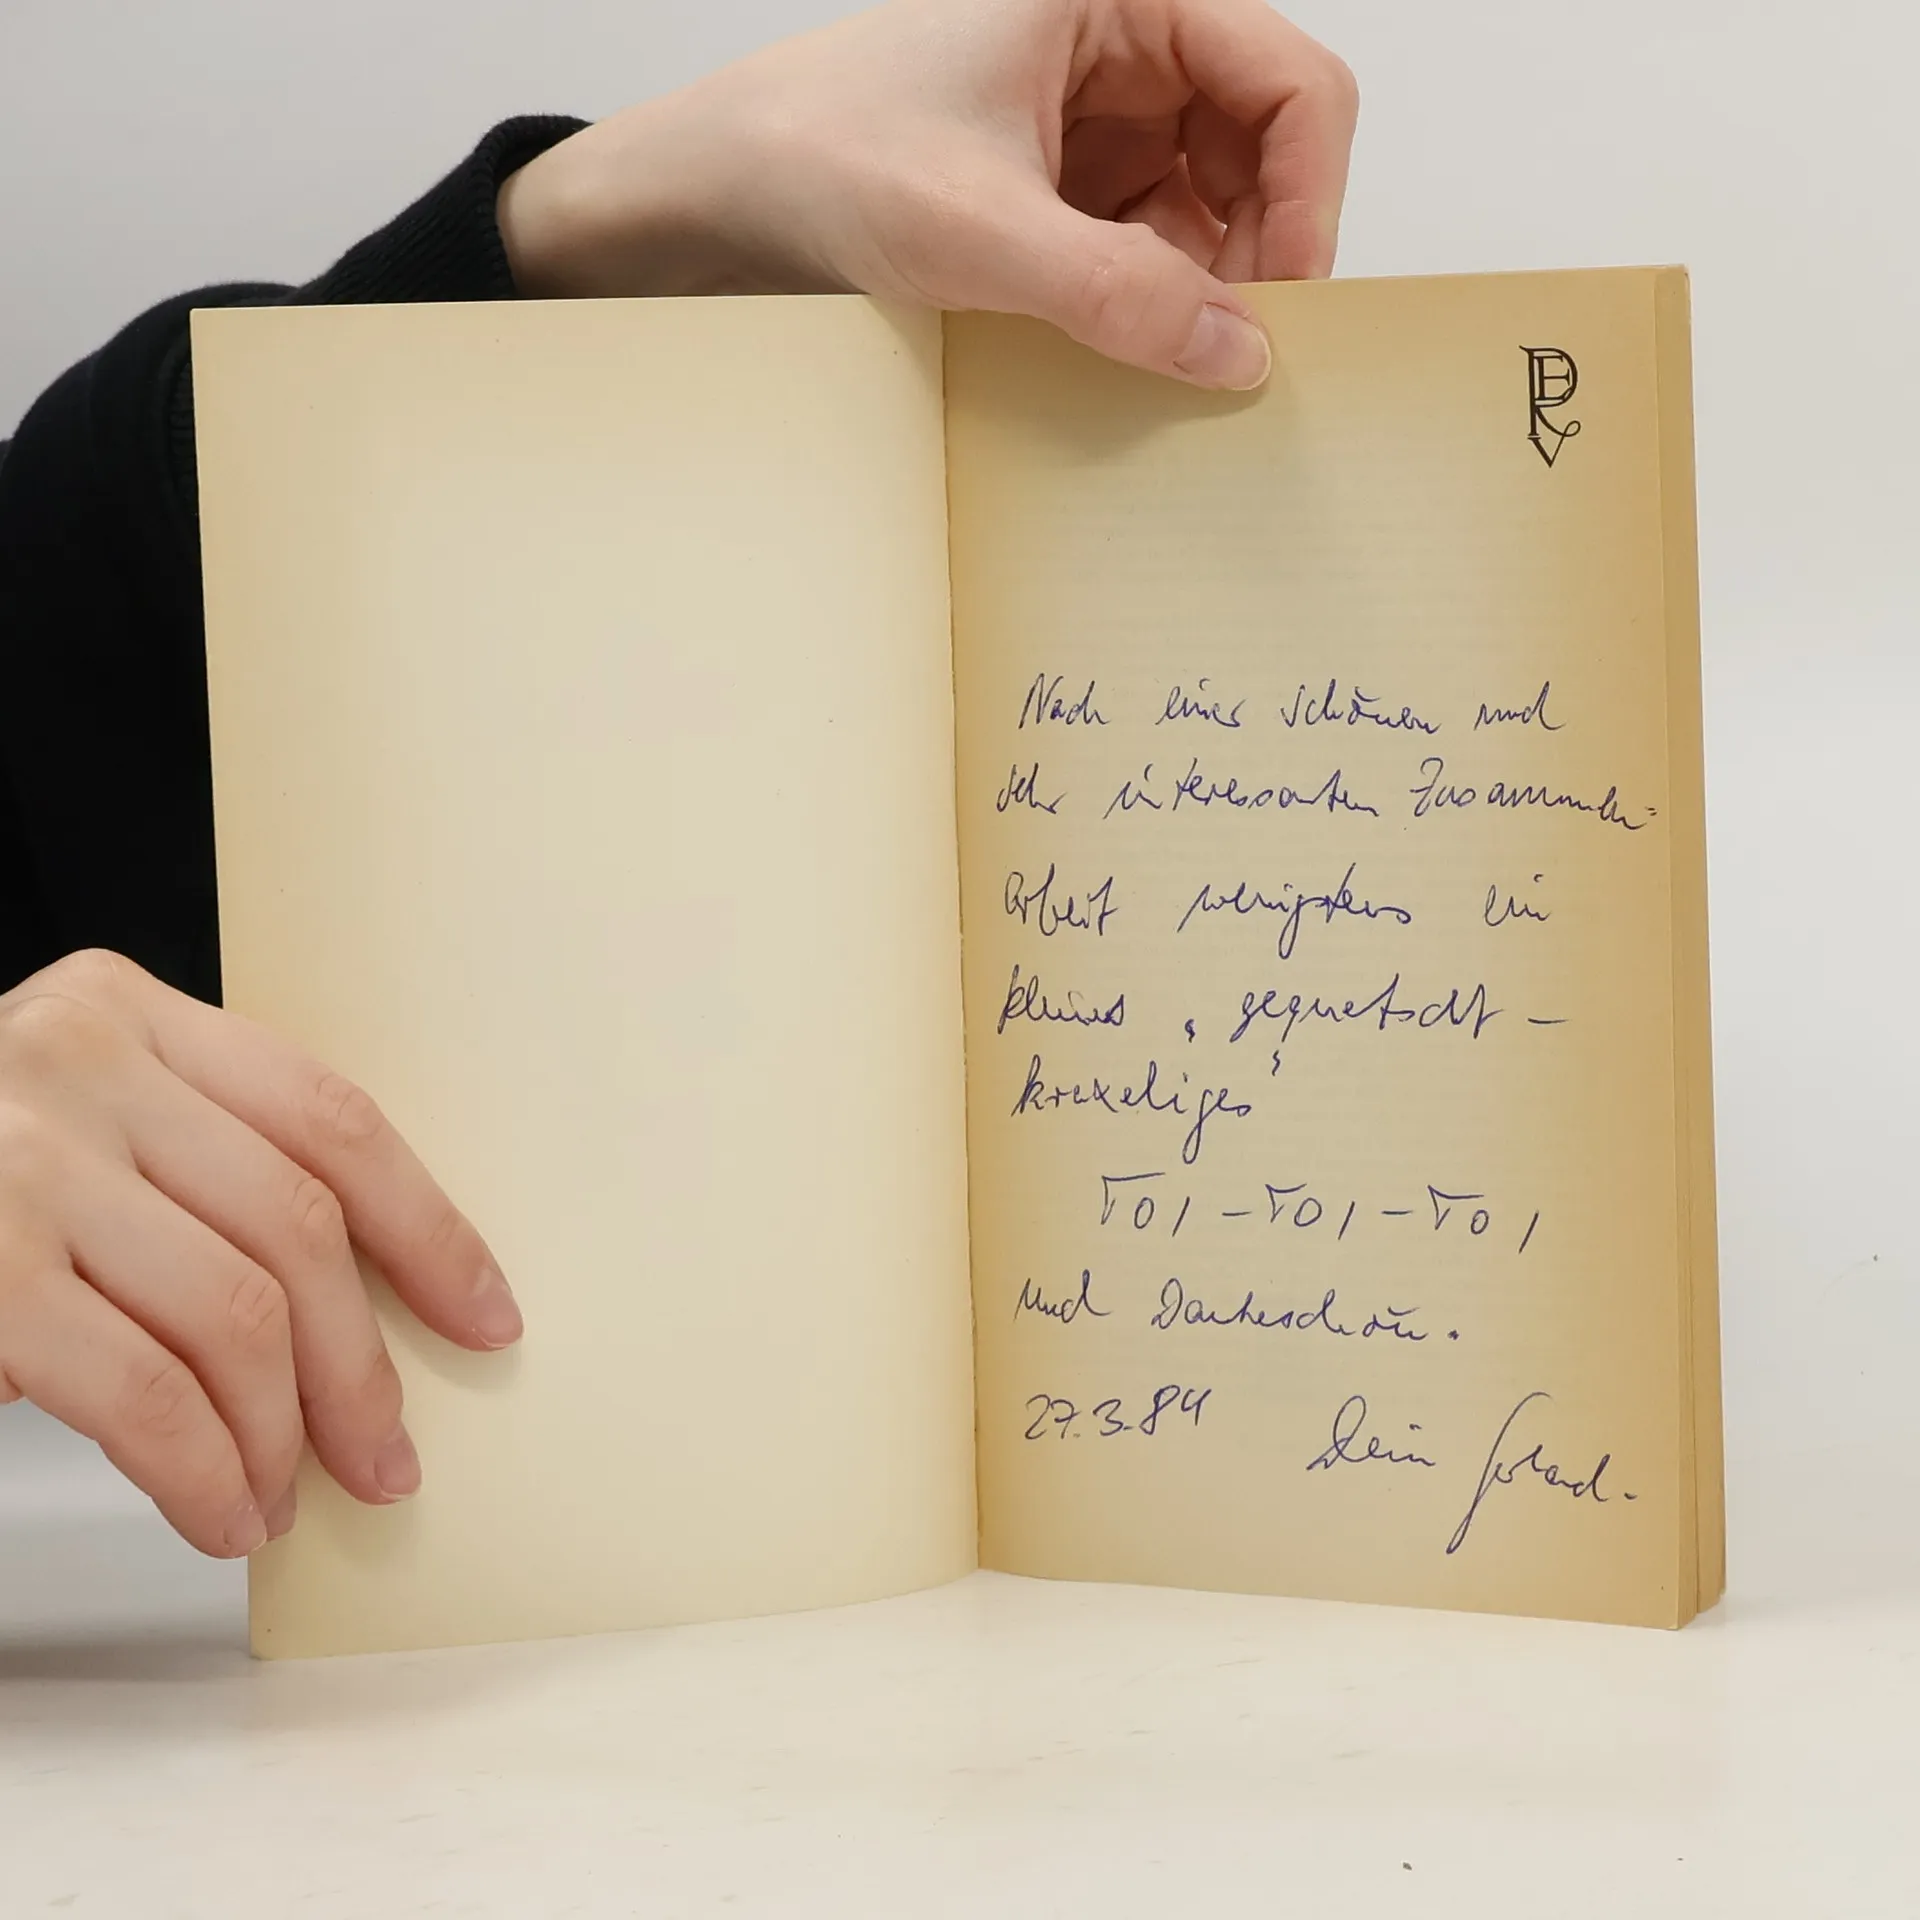 PERV
Nach einer schönen und
sehr interessanten Zusammen=
arbeit wenigstens ein
kleines „gequetscht –
kraxeliges“
TOI – TOI – TOI
und Dankeschön.
27.3.84 Dein